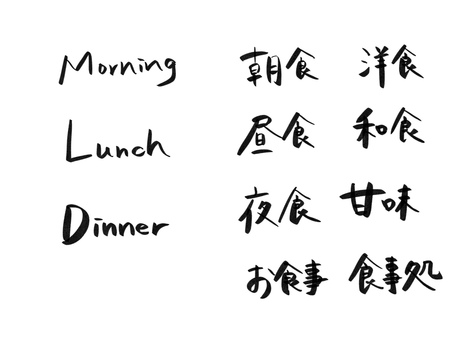 Morning 朝食 洋食
Lunch 昼食 和食
Dinner 夜食 甘味
お食事 食事処